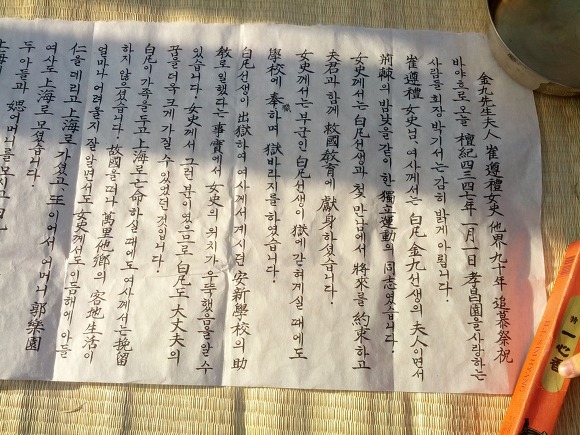 金九先生夫人 崔遵禮女史 他界 九十年 追慕祭祝
바야흐로 오늘 檀紀四三四七年 一月一日 孝昌園을 사랑하는
사람들 회장 박기서는 감히 밝게 아룁니다.
崔遵禮 女史님, 여사께서는 白凡 金九선생의 夫人이면서
荊棘의 밤낮을 같이 한 獨立運動의 同志였습니다.
女史께서는 白凡선생과 첫 만남에서 將來를 約束하고
夫君과 함께 救國敎育에 獻身하셨습니다.
女史께서는 부군인 白凡선생이 獄에 갇혀계실 때에도
學校에 奉職하며 獄바라지를 하였습니다.
白凡선생이 出獄하여 여사께서 계시던 安新學校의 助
敎로 일했다는 事實에서 女史의 위치가 우뚝했음을 알 수
있습니다. 女史께서 그런 분이였으므로 白凡도 大丈夫의
꿈을 더욱 크게 가질 수 있었던 것입니다.
白凡이 가족을 두고 上海로 亡命하실 때에도 여사께서는 挽留
하지 않으셨습니다. 故國을 떠나 萬里他鄕의 客地生活이
얼마나 어려울지 잘 알면서도 女史께서도 이듬해에 아들
仁을 데리고 上海로 가셨고 또 이어서 어머니 郭樂園
여사도 上海로 모셨습니다.
두 아들과 媤어머니를 모시고
一心